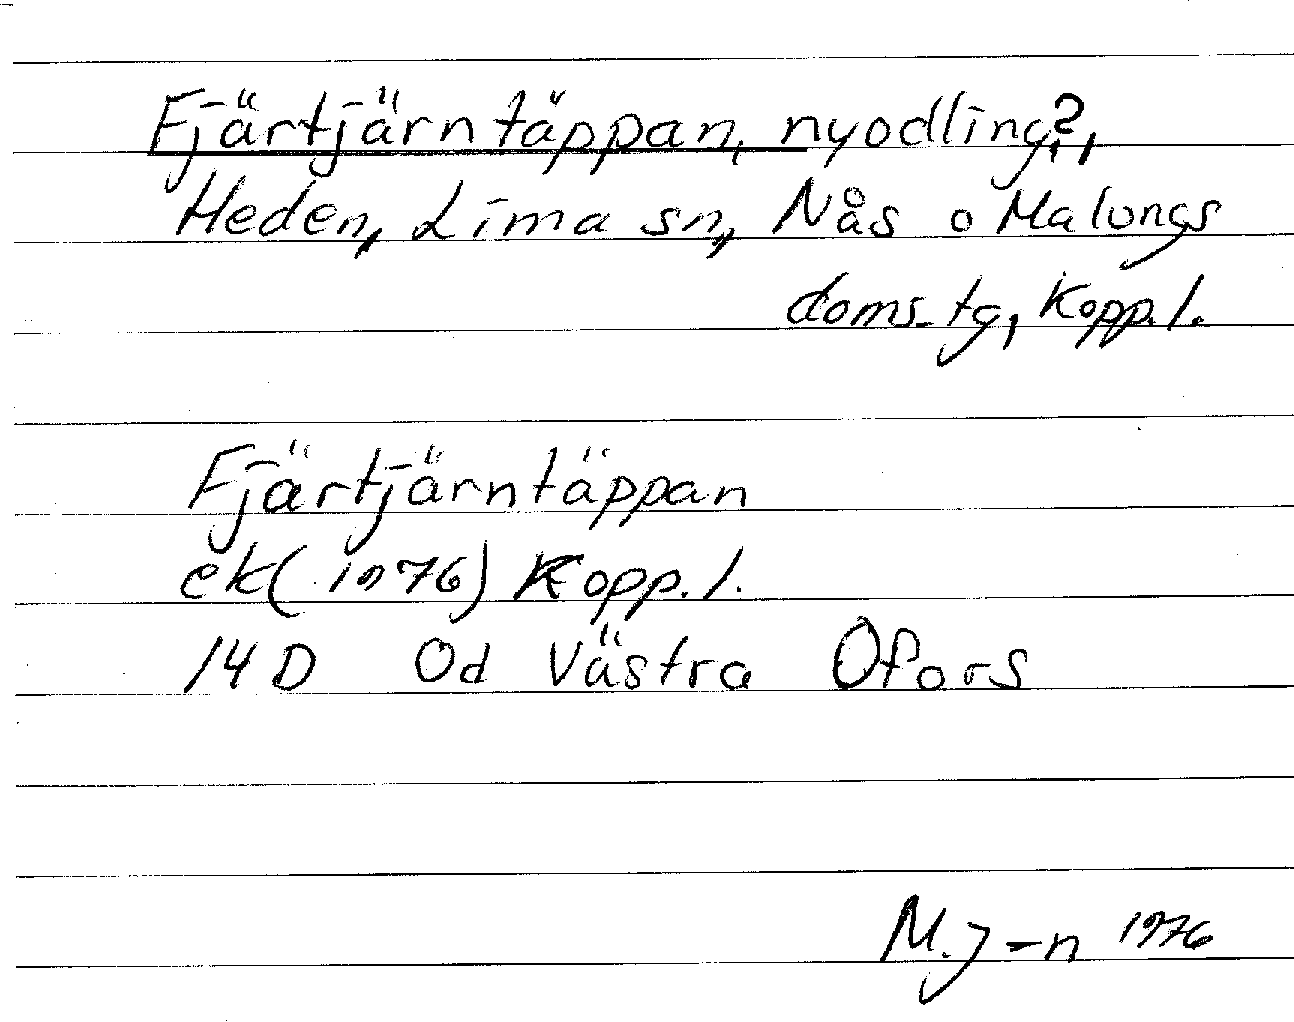 Fjärtjärntäppan, nyodling?,
Heden, Lima sn, Nås o Malungs
doms. tg, Kopp. l.
Fjärtjärntäppan
ek (1976) Kopp. l.
14 D Od Västra Ofors
M. J-n 1976